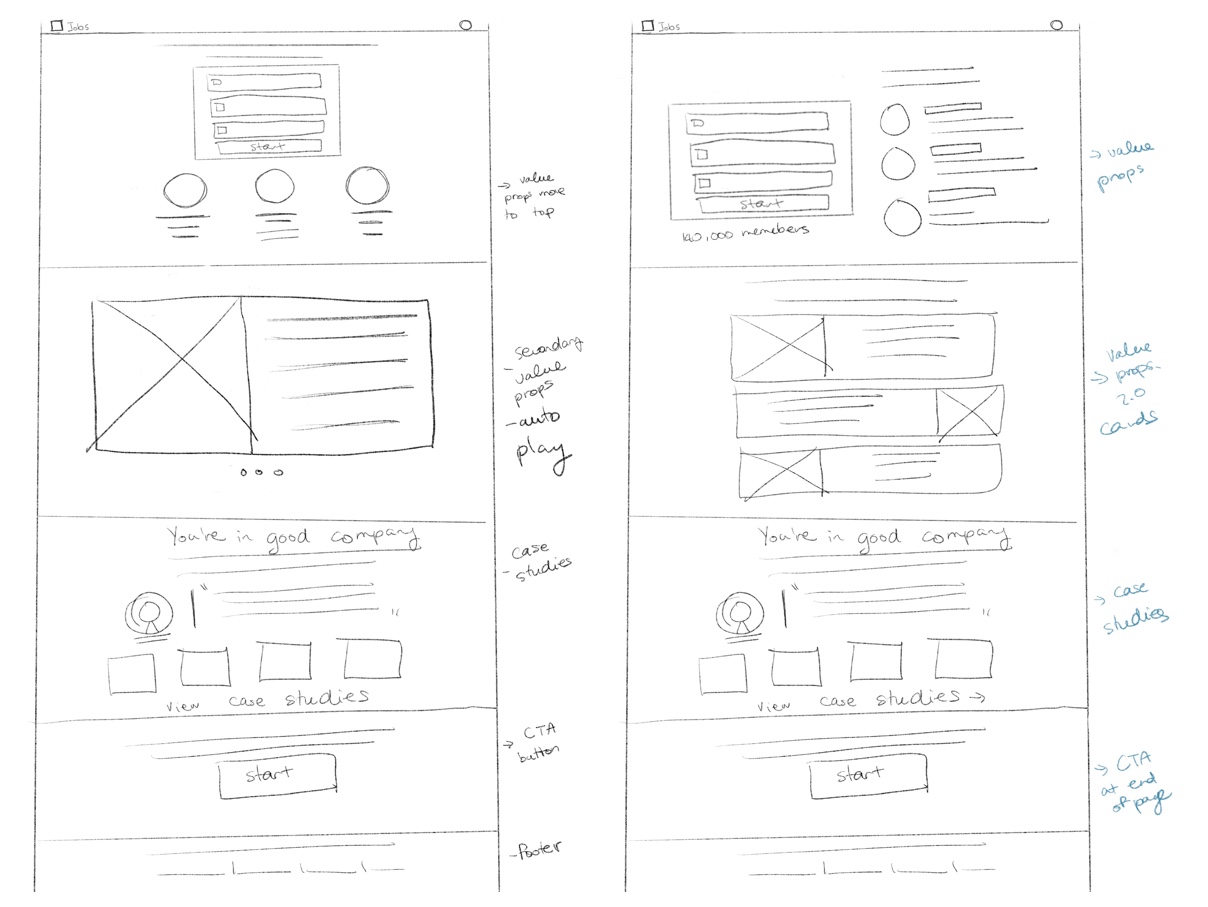 Jobs
start
→ value
props move
to top
- secondary
value
props
- auto
play
You're in good company
"
"
- case
studies
view case studies
→ CTA
button
start
- Footer
Jobs
start
140,000 memebers
→ value
props
value
→ props.
2.0
cards
You're in good company
"
"
→ case
studies
view case studies →
start
→ CTA
at end
of page